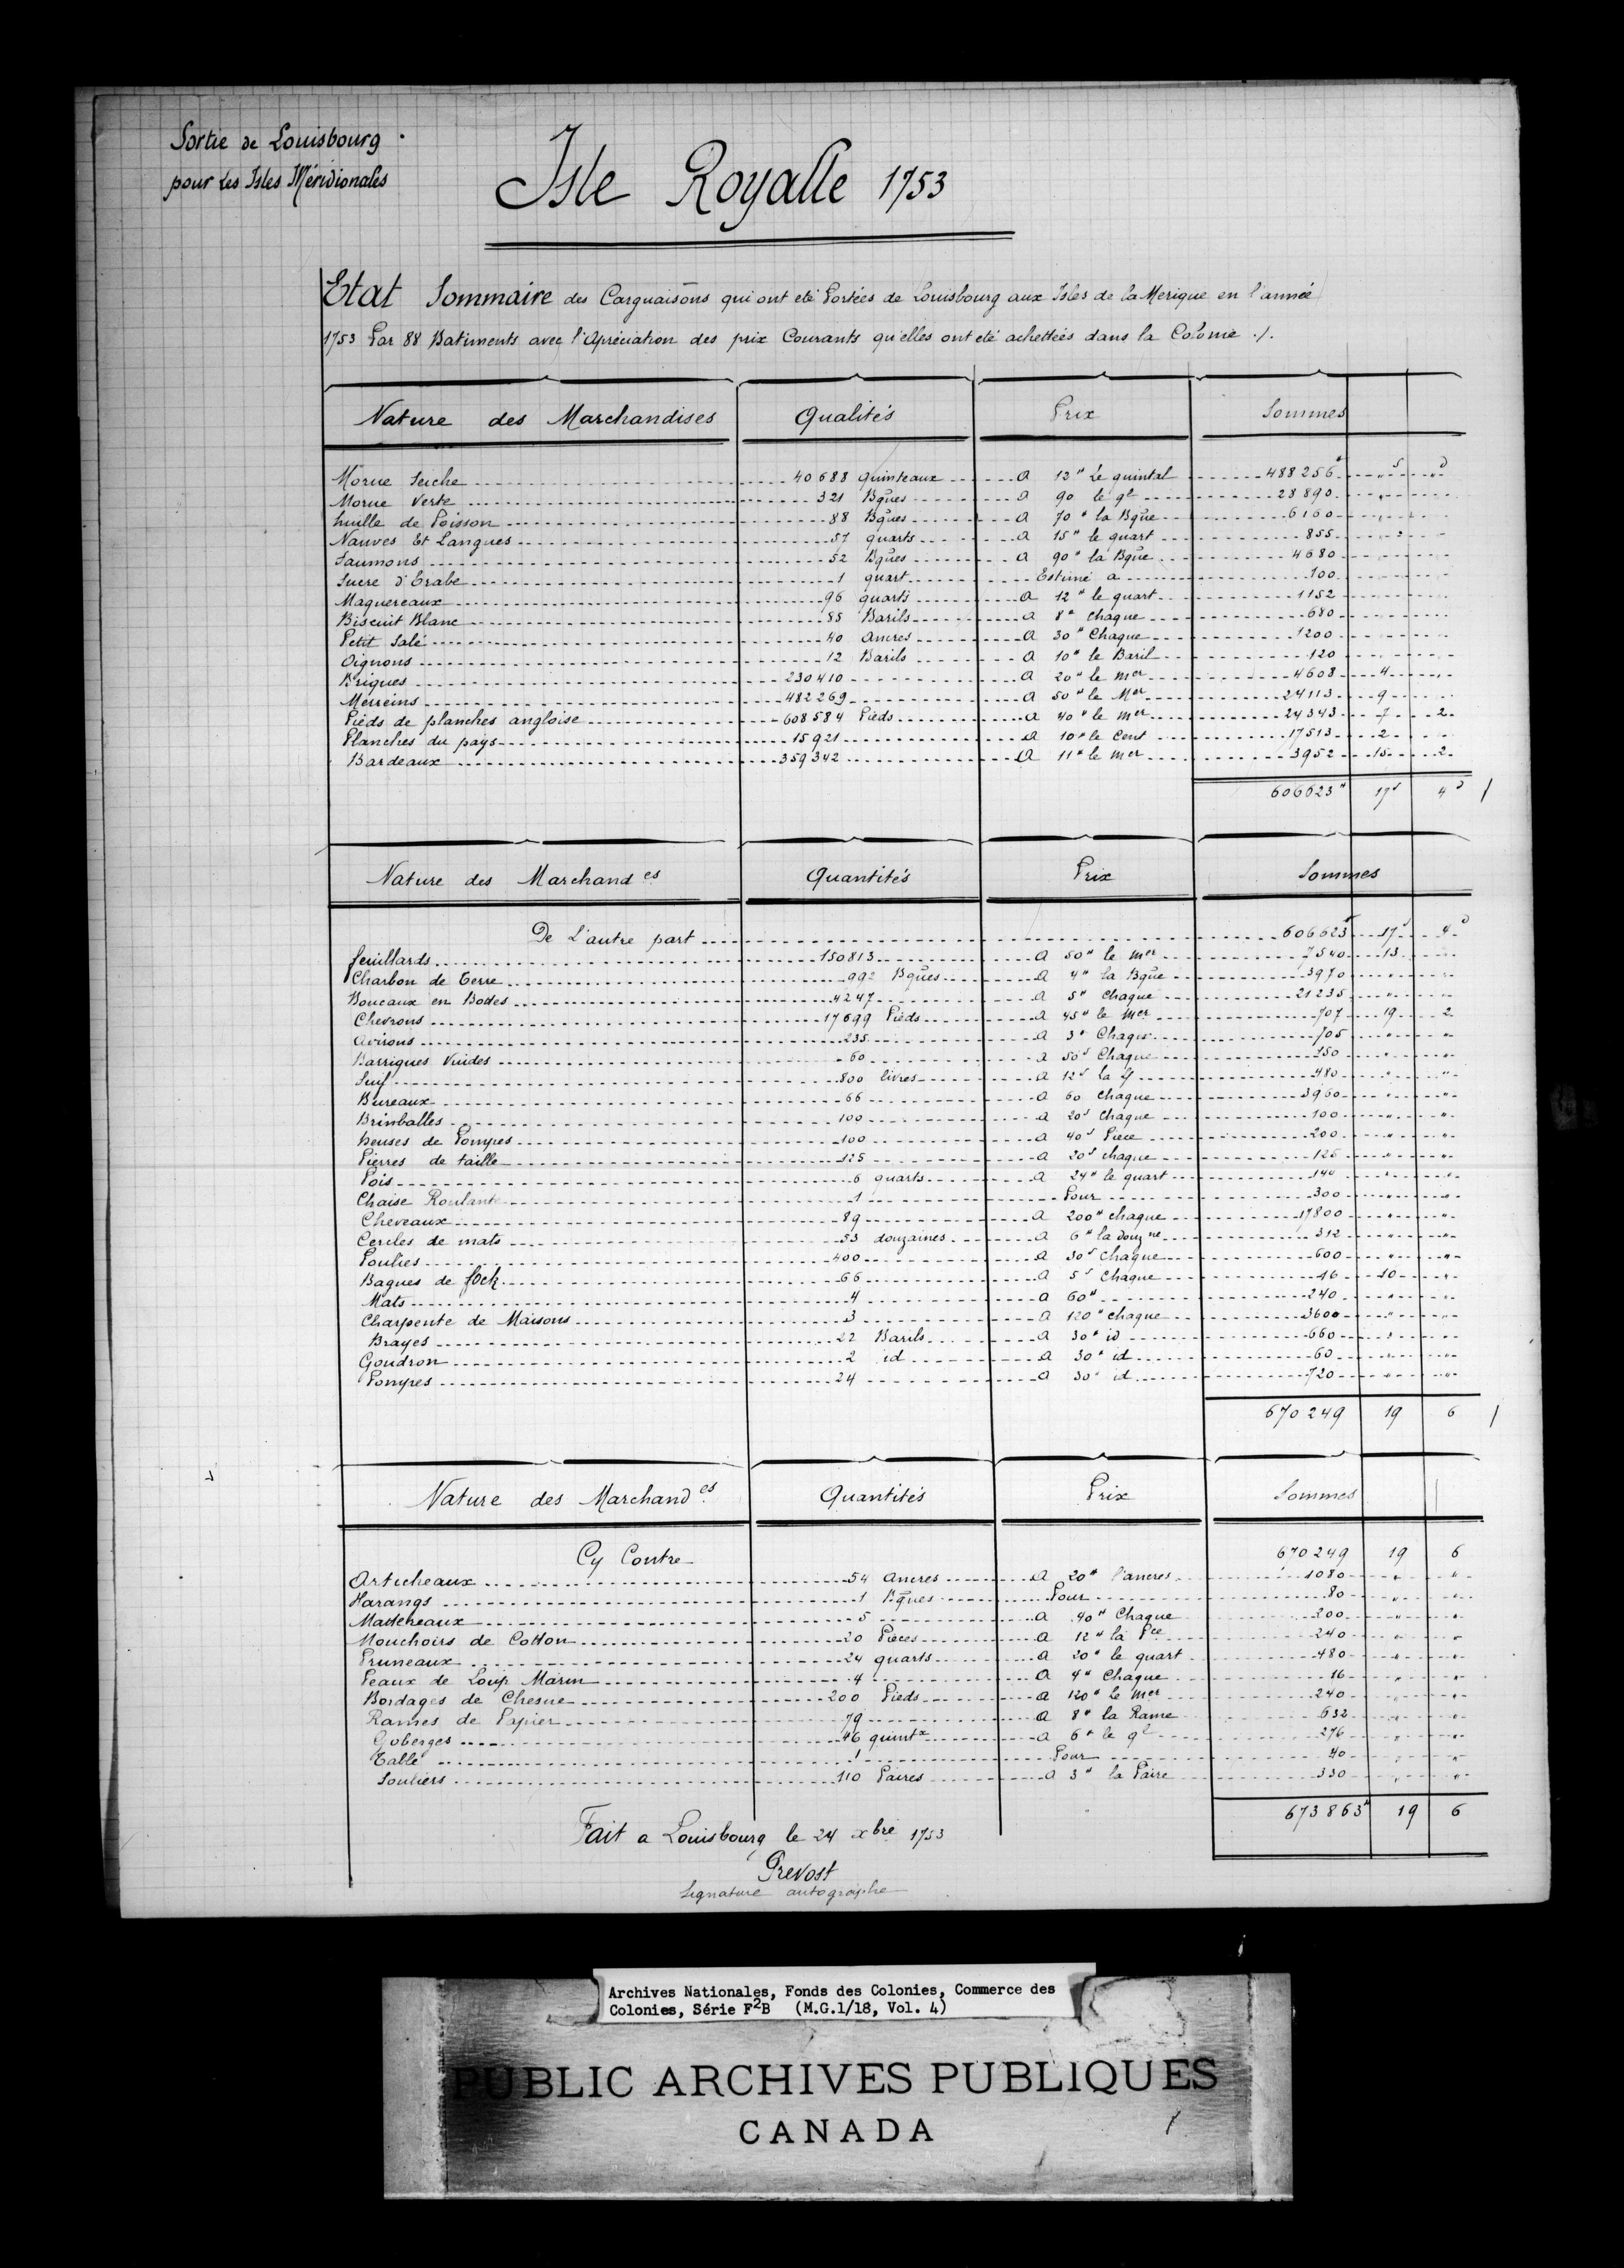 Sortie de Louisbourg
pour les Isles Méridionales
Isle Royalle 1753
Etat Sommaire des Carguaisons qui ont eté Portées de Louisbourg aux Isles de la Merique en l'année
1753 Par 88 Batiments avec l'Apréciation des prix Courants qu'elles ont eté achettées dans la Colonie ./.
Nature des Marchandises Qualités Prix Sommes
Morue Seiche 40688 quinteaux a 12" Le quintal 488256" " s " d
Morue Verte 321 Bques a 90 le ql 28890 "
huille de Poisson 88 Bques a 70" la Bque 6160 "
Nauves Et Langues 57 quarts a 15" le quart 855 "
Saumons 52 Bques a 90" la Bque 4680
Sucre d'Erabe 1 quart Estimé a 100
Maquereaux 96 quarts a 12" le quart 1152
Biscuit Blanc 85 Barils a 8" chaque 680
Petit Salé 40 ancres a 30" Chaque 1200
Oignons 12 Barils a 10" le Baril 120
Briques 230410 a 20" le mer 4608 4 "
Merreins 482269 a 50" le Mer 24113 9
Pieds de planches angloise 608584 Pieds a 40" le mer 24343 7 2
Planches du pays 15921 a 10" le Cent 17513 2
Bardeaux 359342 a 11" le mer 3952 15 2
606623" 17s 4d /
Nature des Marchandes Quantités Prix Sommes
De L'autre part 606623" 17s 4d
feuillards 150813 a 50" le mer 7540 13
Charbon de terre 992 Bques a 4" la Bque 3970 "
Boucaux en Bottes 4247 a 5" chaque 21235 " "
Chevrons 17699 Pieds a 45" le mer 707 19 2
avirons 235 a 3" Chaque 705 " "
Barriques Vuides 60 a 50s Chaque 150 " "
Suif 800 livres a 12s la lf 480 " "
Bureaux 66 a 60 chaque 3960 " "
Brinballes 100 a 20s chaque 100 " "
heuses de Pompes 100 a 40s Piece 200 " "
Pierres de taille 125 a 20s chaque 125 " "
Pois 6 quarts a 24" le quart 144 " "
Chaise Roulante 1 Pour 300 " "
Cheveaux 89 a 200" chaque 17800 " "
Cercles de mats 53 douzaines a 6" la douzne 312 " "
Poulies 400 a 30s chaque 600 " "
Bagues de fock 66 a 5s chaque 16 10 "
Mats 4 a 60" 240 " "
Charpente de Maisons 3 a 120" chaque 3600 " "
Brayes 22 Barils a 30" id 660 " "
Goudron 2 id a 30" id 60 " "
Pompes 24 a 30" id 720 " "
670249 19 6 /
Nature des Marchandes Quantités Prix Sommes
Cy Contre 670249 19 6
Articheaux 54 ancres a 20" l'ancres 1080 " "
Harangs 1 Bques Pour 80 " "
Mattereaux 5 a 40" Chaque 200 " "
Mouchoirs de Cotton 20 Pieces a 12" la Pce 240 " "
Pruneaux 24 quarts a 20" le quart 480 " "
Peaux de Loup Marin 4 a 4" Chaque 16 " "
Bordages de Chesne 200 Pieds a 120" le mer 240 " "
Rames de Papier 79 a 8" la Rame 632 " "
Goberges 46 quintx a 6" le ql 276 " "
Table 1 Pour 40 " "
Souliers 110 Paires a 3" la Paire 330 " "
673863" 19 6
Fait a Louisbourg le 24 xbre 1753
Prevost
Signature autographe
Archives Nationales, Fonds des Colonies, Commerce des
Colonies, Série F2B (M.G.1/18, Vol. 4)
PUBLIC ARCHIVES PUBLIQUES
CANADA